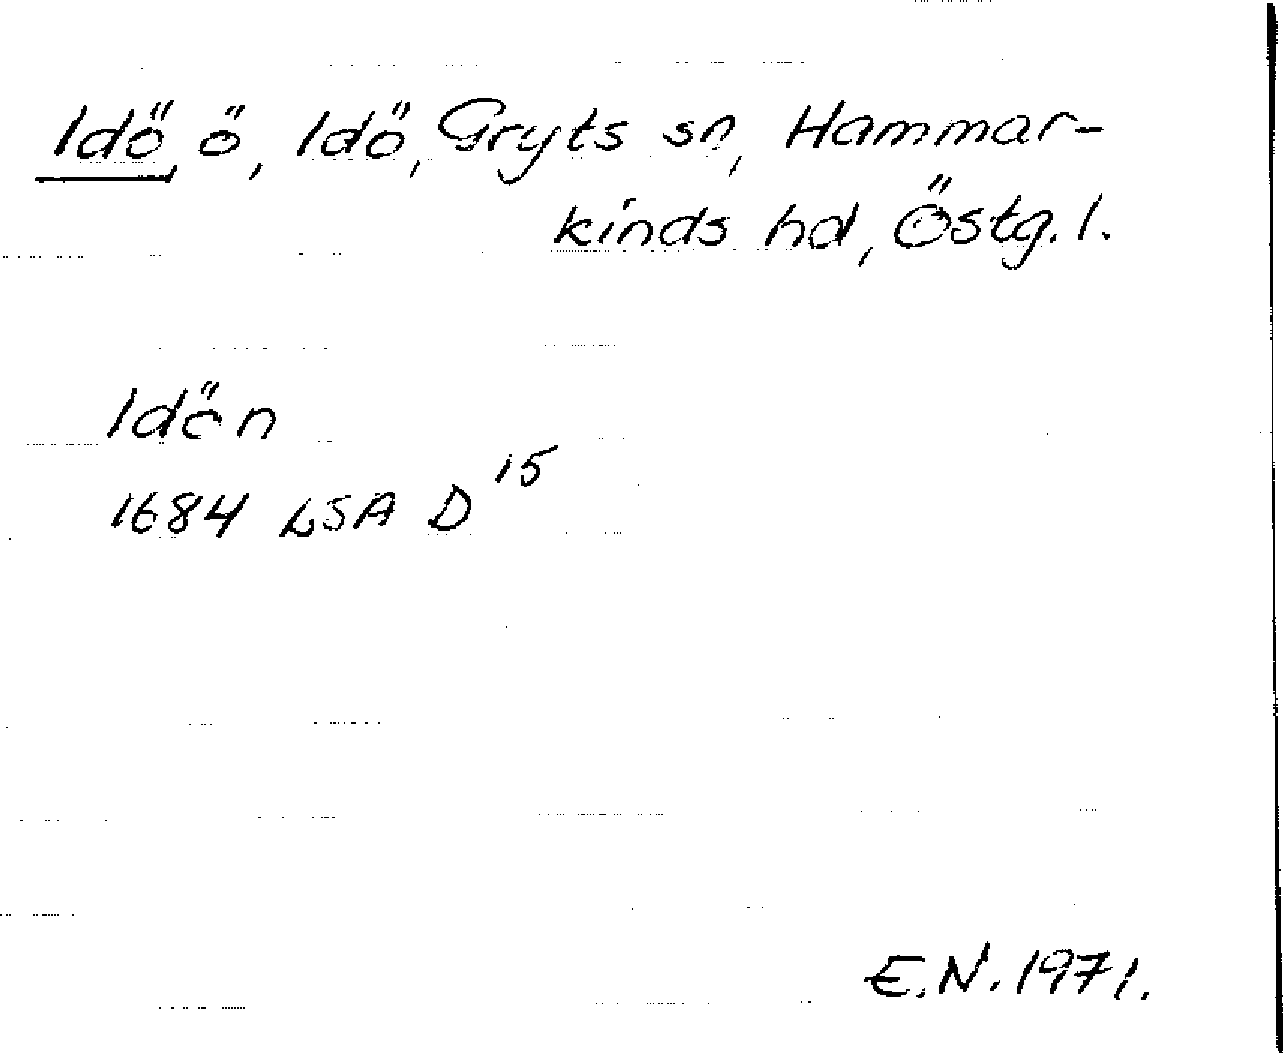 Idö, ö, Idö, Gryts sn, Hammar-
kinds hd, Östg. l.
Idön
1684 LSA D 15
E.N. 1971.